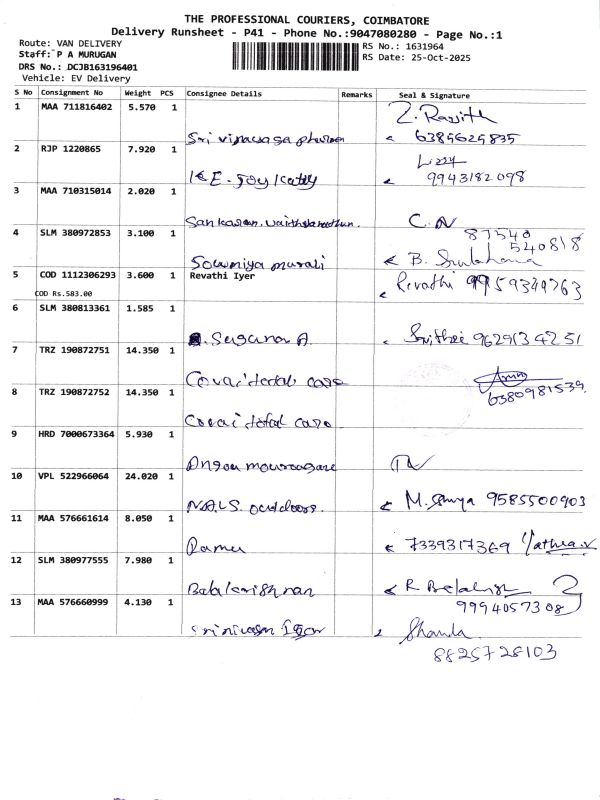 THE PROFESSIONAL COURIERS, COIMBATORE
Delivery Runsheet - P41 - Phone No.:9047080280 - Page No.:1
Route: VAN DELIVERY
Staff: P A MURUGAN
DRS No.: DCJB163196401
Vehicle: EV Delivery
RS No.: 1631964
RS Date: 25-Oct-2025
S No Consignment No Weight PCS Consignee Details Remarks Seal & Signature
1 MAA 711816402 5.570 1
Z. Ravith
Sri 6385625835
2 RJP 1220865 7.920 1
Lizzy
K.E. Joy Kutty 9943182098
3 MAA 710315014 2.020 1
Sankaran C. N
4 SLM 380972853 3.100 1
87540
540818
Sowmiya murali B.
5 COD 1112306293 3.600 1 Revathi Iyer
COD Rs.583.00
Revathi 9959349763
6 SLM 380813361 1.585 1
Suguna A. 9629134251
7 TRZ 190872751 14.350 1
Covai total care
6380981539
8 TRZ 190872752 14.350 1
Covai total care
9 HRD 7000673364 5.930 1
10 VPL 522966064 24.020 1
N.A.L.S. outdoors. M. 9585500903
11 MAA 576661614 8.050 1
Ramu 7339317369
12 SLM 380977555 7.980 1
Balakrishnan R
9994057308
13 MAA 576660999 4.130 1
Srinivasan Shanta
8825728103